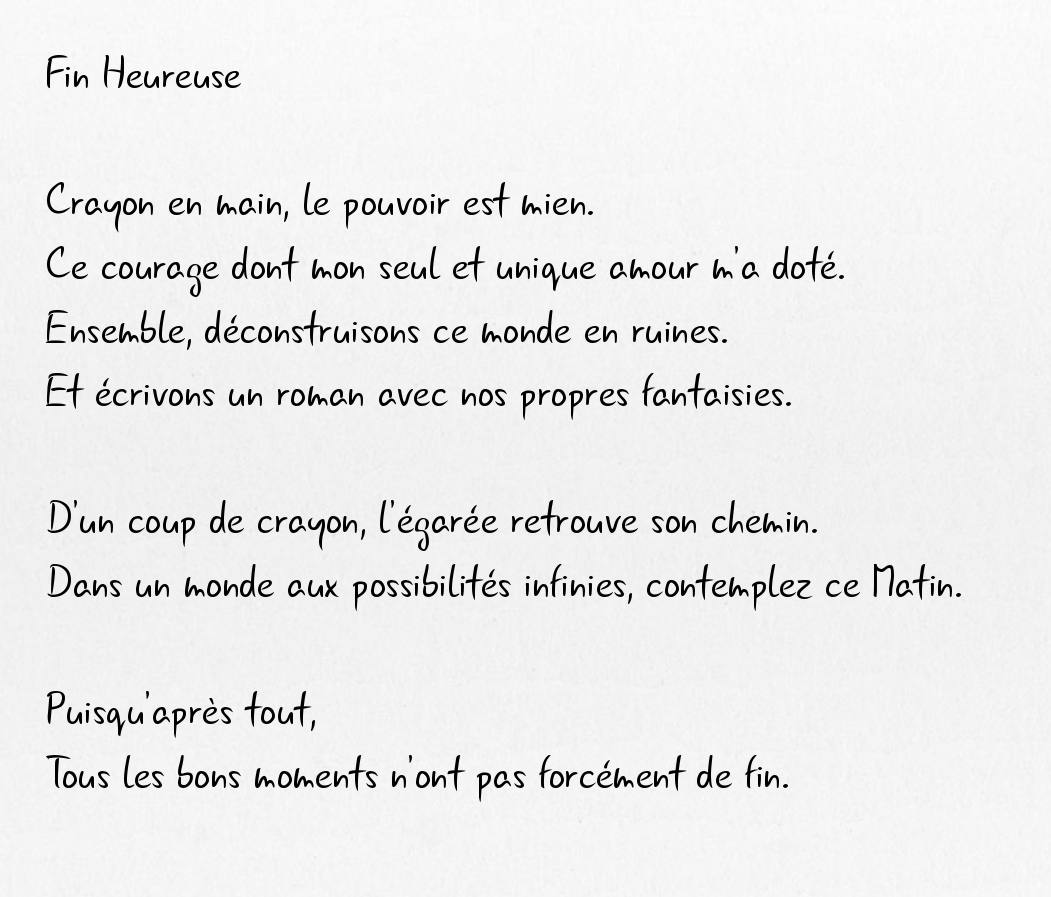 Fin Heureuse
Crayon en main, le pouvoir est mien.
Ce courage dont mon seul et unique amour m'a doté.
Ensemble, déconstruisons ce monde en ruines.
Et écrivons un roman avec nos propres fantaisies.
D'un coup de crayon, l'égarée retrouve son chemin.
Dans un monde aux possibilités infinies, contemplez ce Matin.
Puisqu'après tout,
Tous les bons moments n'ont pas forcément de fin.